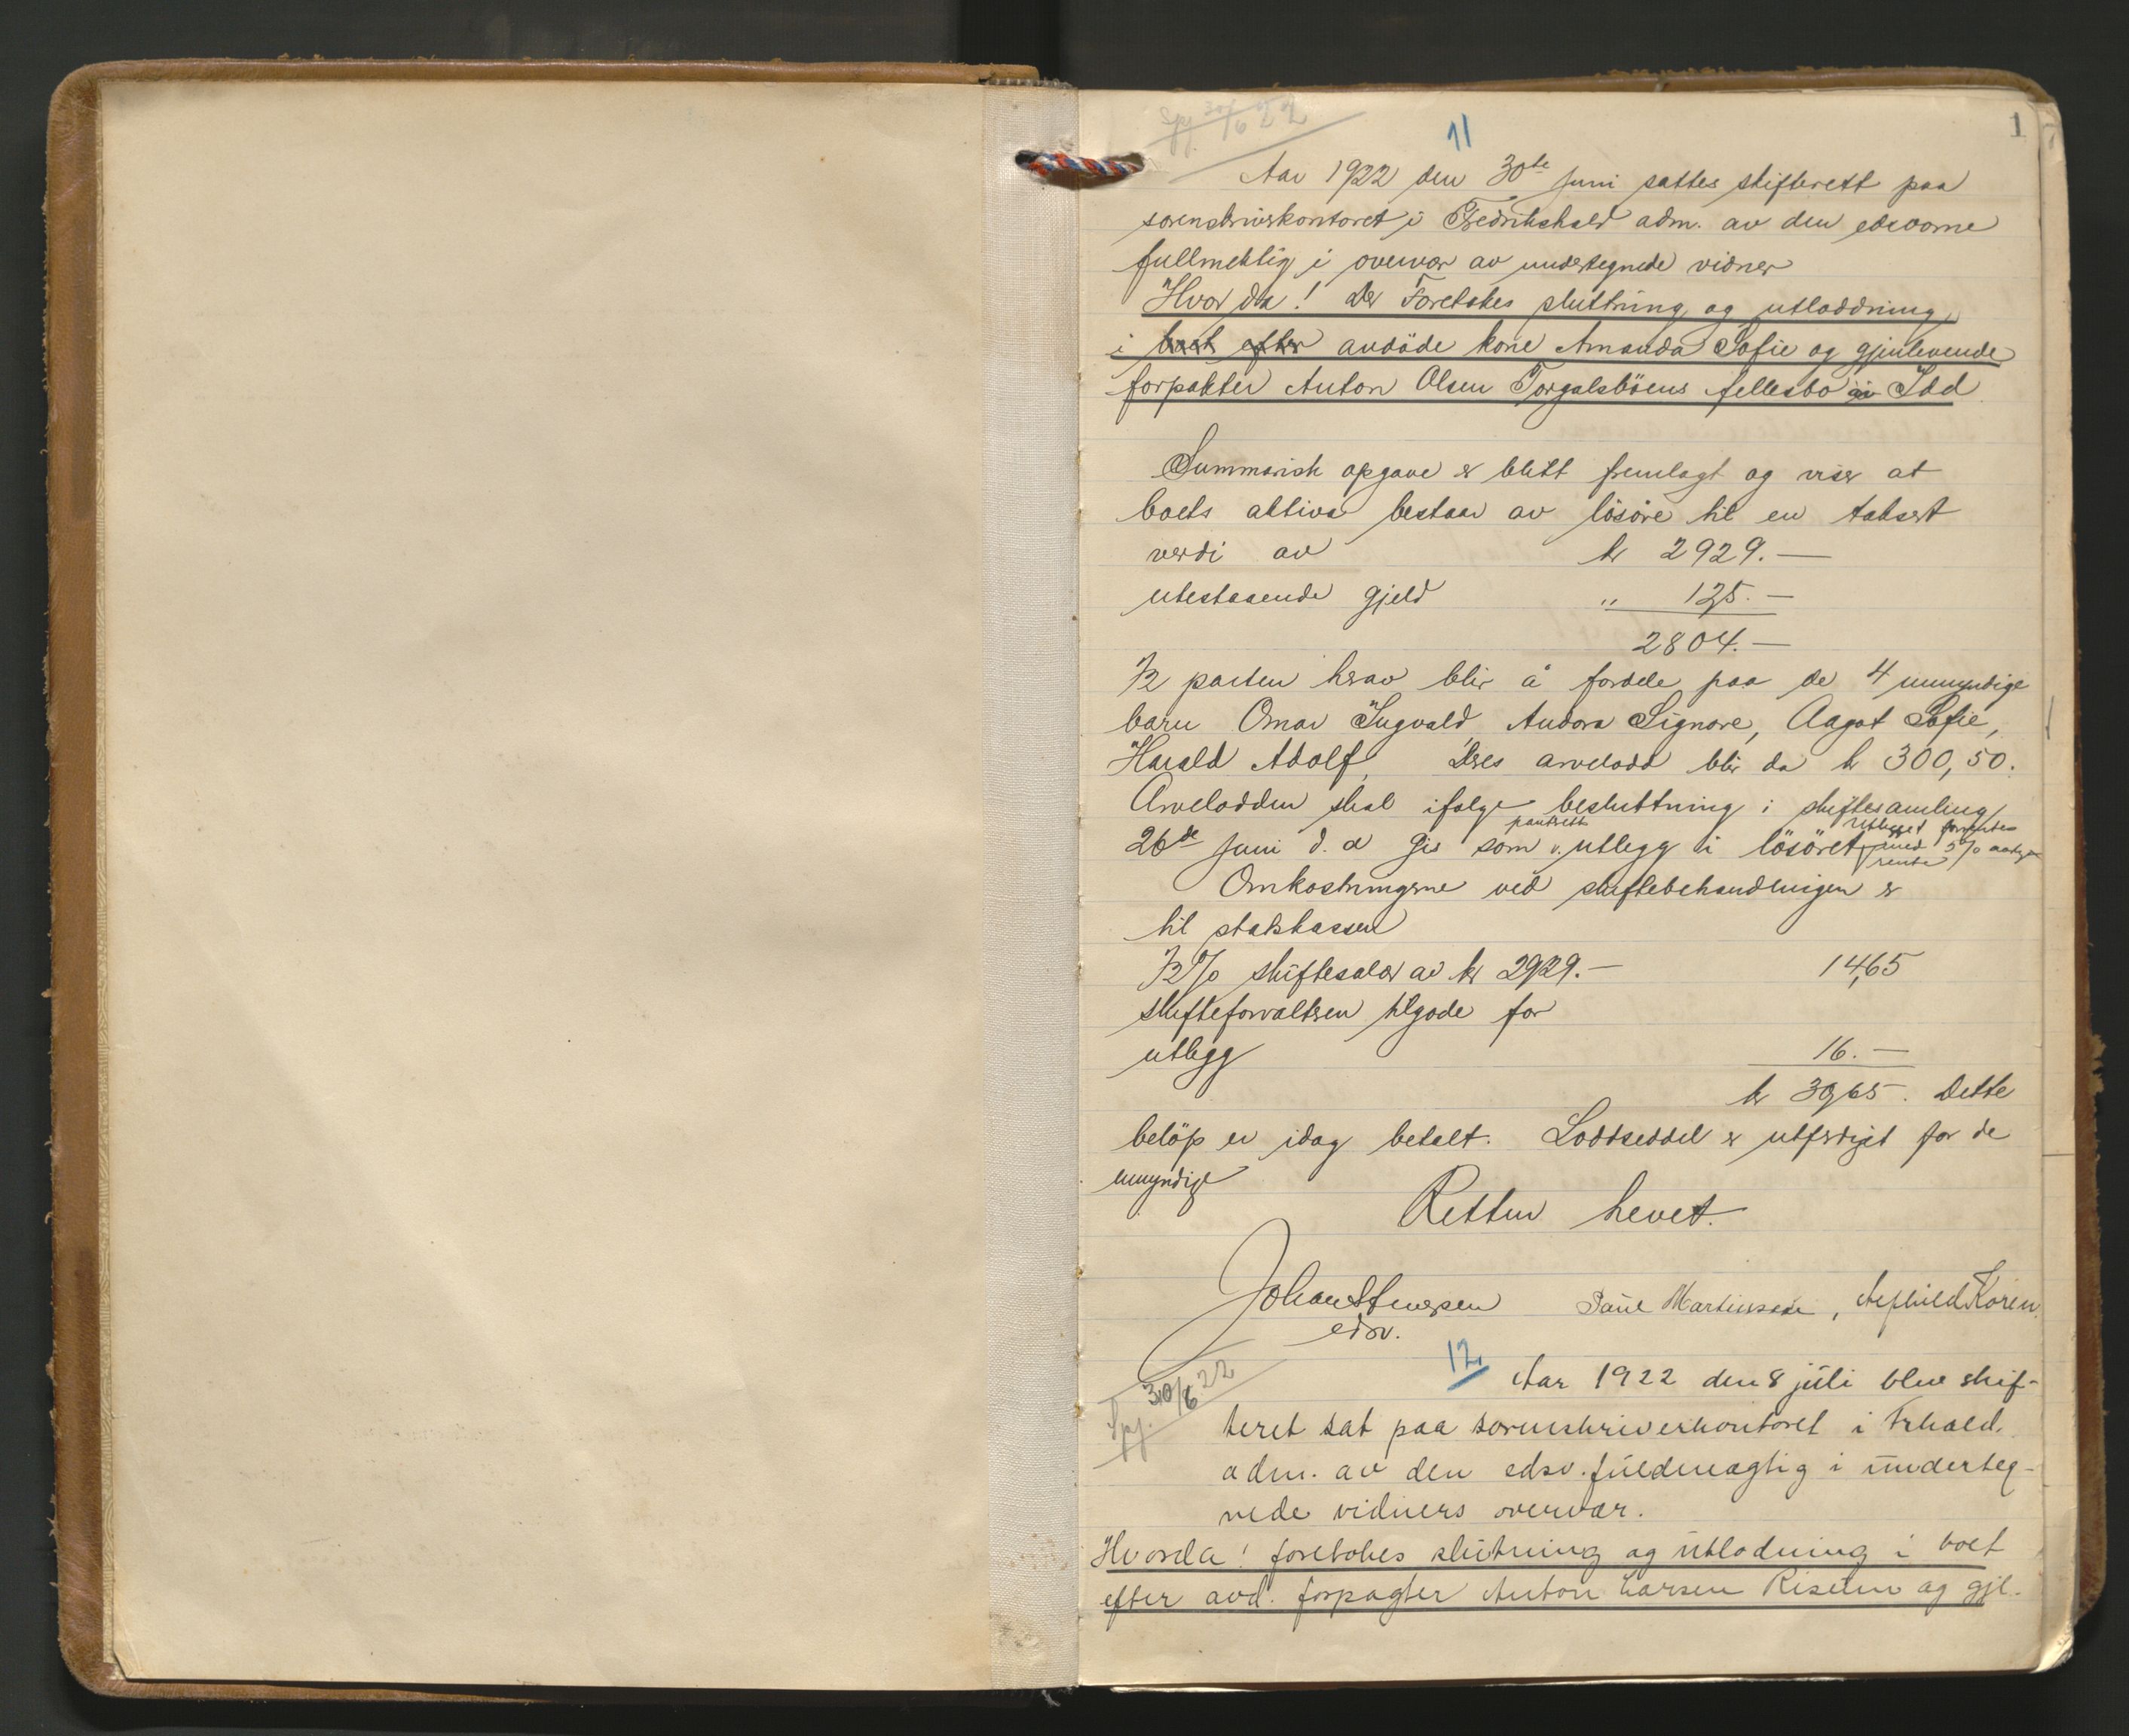 1
Spj. 30/6 22
11
Aar 1922 den 30te Juni sattes skifterett paa
sorenskriverkontoret i Fredrikshald adm. av den edsvorne
fullmektig i overvær av undertegnede vidner
Hvorda! Der Foretokes sluttning og utloddning
i boet efter avdöde kone Amanda Sofie og gjenlevende
forpakter Anton Olsen Torgalsböens fellesbo i Idd
Summarisk opgave er blitt fremlagt og viser at
boets aktiva bestaar av lösöre til en taksert
verdi av kr 2929.—
utestaaende gjeld " 125.—
2804.—
1/2 parten herav blir å fordele paa de 4 umyndige
barn Omar Ingvald, Andora Signore, Aagot Sofie,
Harald Adolf, Deres arvelodd blir da kr 300,50.
Arvelodden skal ifölge besluttning i skiftesamling
26de Juni d. a gis som pantrett v. utlegg i lösöret utlegget forrentes med 5% rente
Omkostningerne ved skiftebehandlingen er
til statskassen
1/2% skiftesalær av kr 2929.— 14,65
skifteforvalteren tilgode for
utlegg 16.—
kr 30,65. Dette
belöp er idag betalt. Loddseddel er utferdiget for de
umyndige
Retten hevet.
Johan Stenersen Paul Martinsen, Koren
edsv.
Spj. 30/6 22
12
Aar 1922 den 8 juli blev skif-
teret sat paa sorenskriverkontoret i Frhald.
adm. av den edsv. fuldmægtig i underteg-
nede vidners overvær.
Hvorda! foretokes slutning og utlodning i boet
efter avd. forpagter Anton Larsen Riseten og gjl.